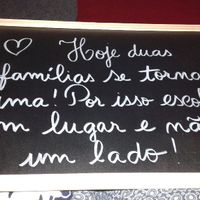 Hoje duas
famílias se torna
uma! Por isso escol
m lugar e nã
um lado!